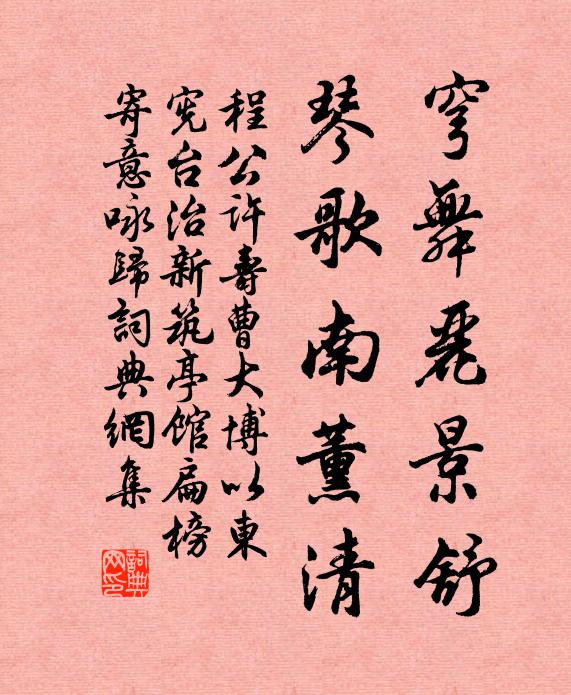 穹舞麗景舒
琴歌南薰清
程公許壽曹大博以東
憲台治新筑亭館扁榜
寄意咏歸詞典網集
詞典网印